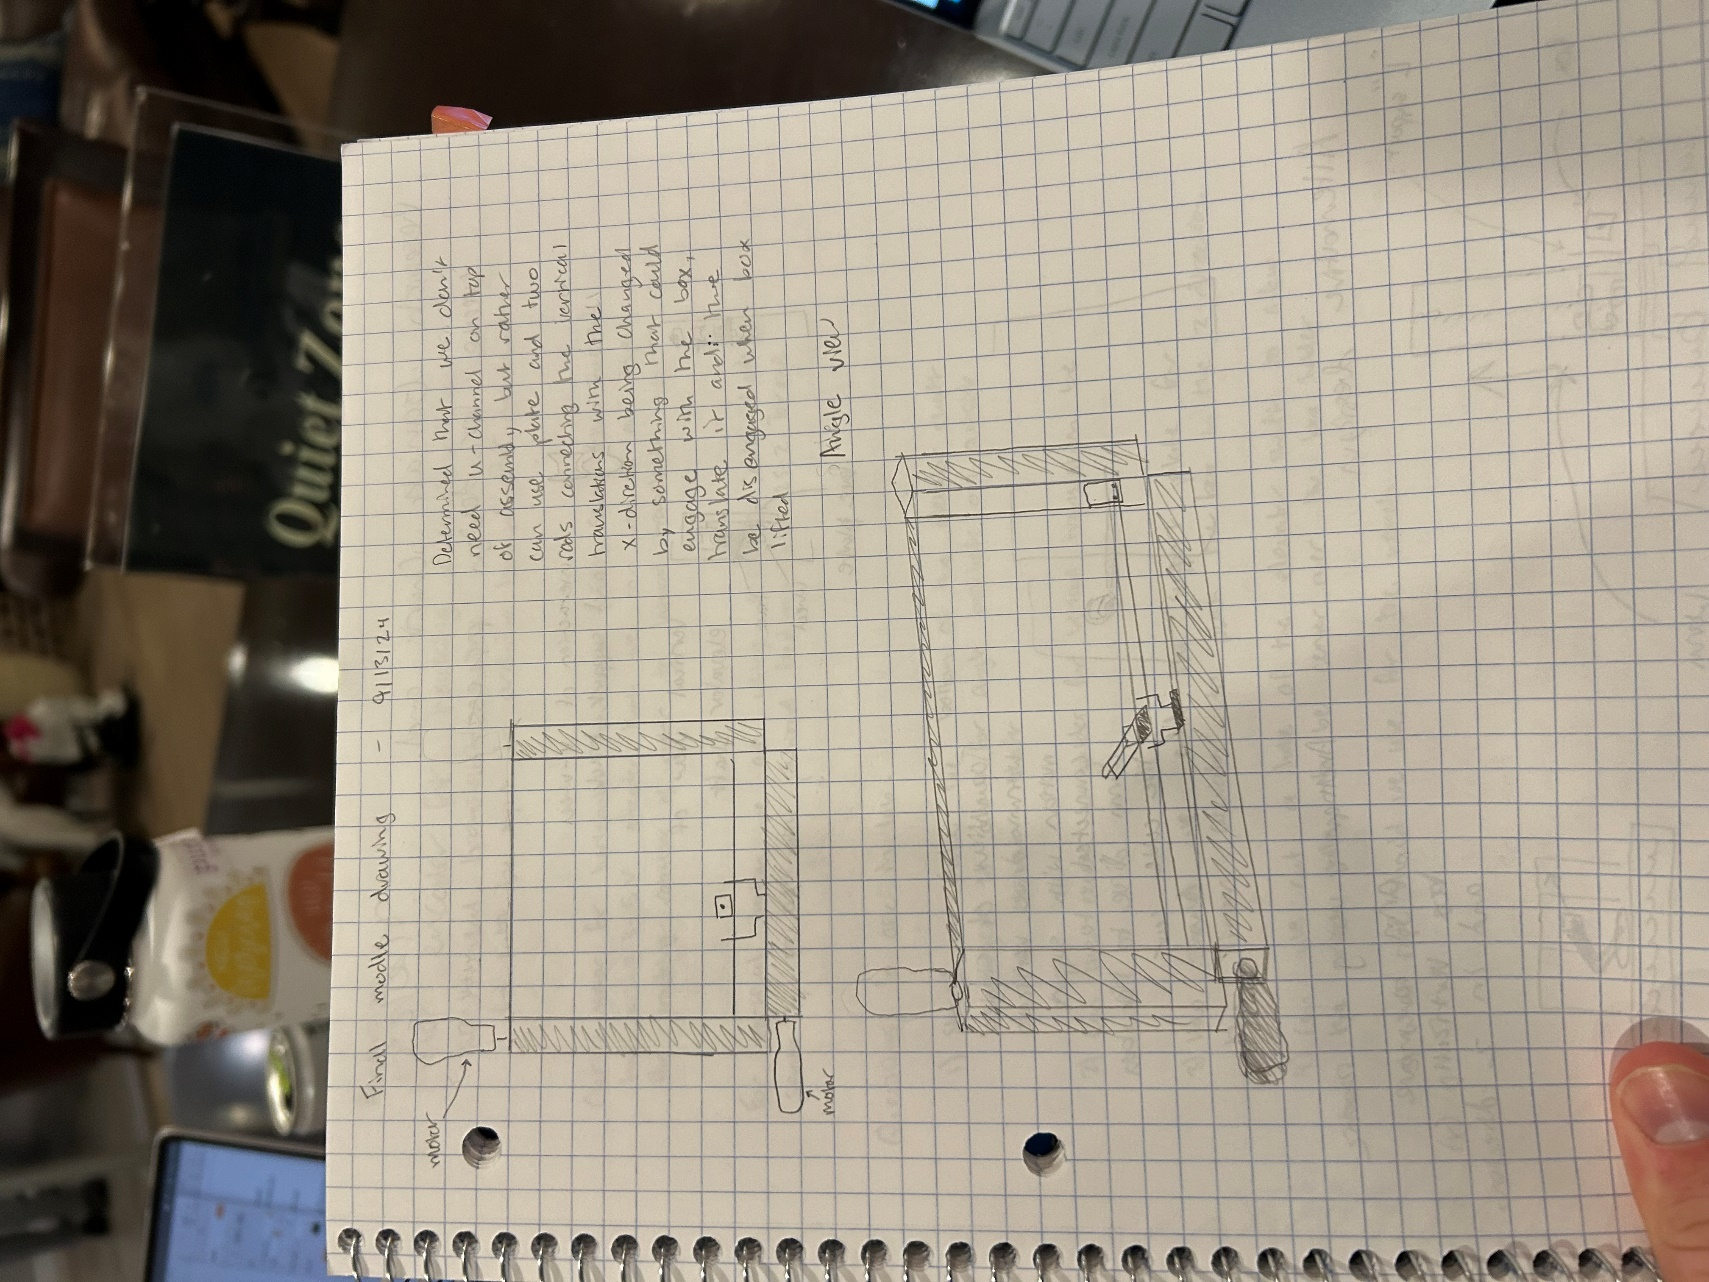 Final modle drawing - 9/13/24
motor
motor
Determined that we don't
need u-channel on top
of assembly but rather
can use plate and two
rods connecting the vertical
translations with the
x-direction being changed
by something that could
engage with the box,
translate it and the
be disengaged when box
lifted
Angle view
Quiet Zon